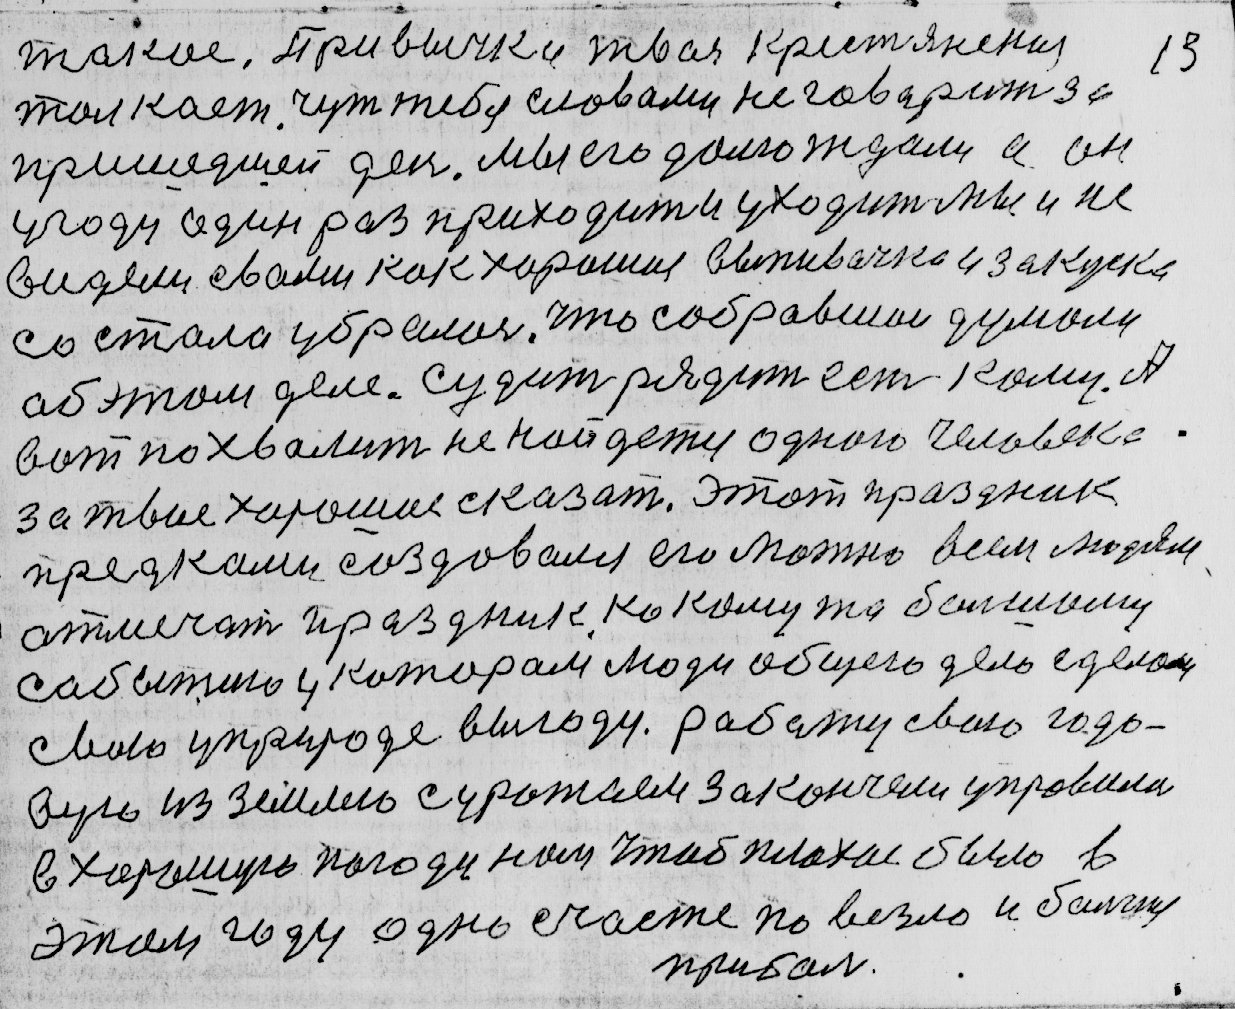 такое. Привычка твоя крестянения 13
толкает. чут тебя словами не говарит за
пришедшей ден. Мы его долго ждали а он
угоду один раз приходит и уходит мы и не
видели свами как хорошия выпивачка и закуска
со стала убралися. Что собравшии думали
аб этом деле. Судит рядит ест кому. А
вот похвалит не найдети одного человека.
за твое хорошие сказат. Этот праздник
предками создовался его можно всем людям
атмечат праздник какому та балшому
сабытию укоторам люди общего дело сделали
свою уприроде выгоду. работу свою годо-
вую из землею сурожаем закончели управила
в хорошую погоду нам чтоб плохое было в
этом году одно счасте повезло и
прибал.